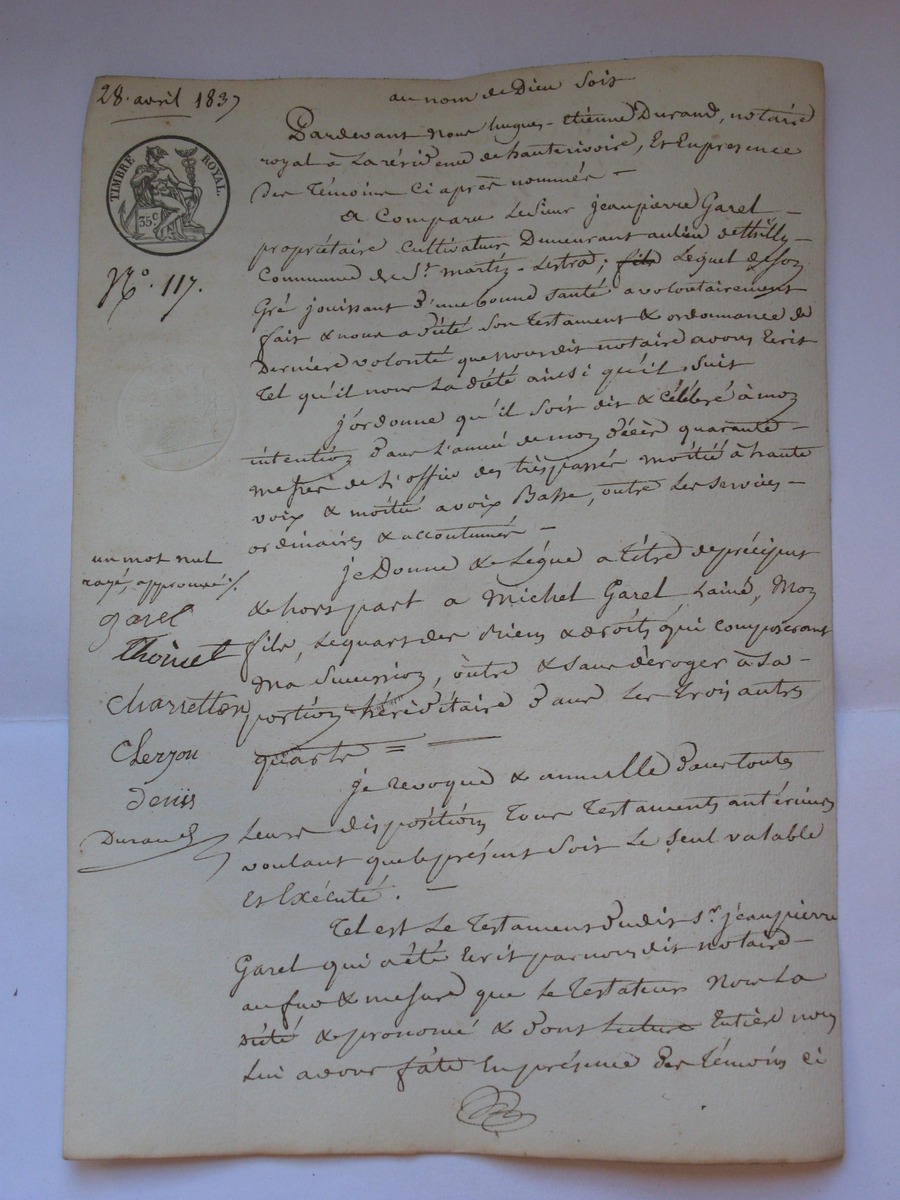 28. avril 1837
au nom de Dieu soit
TIMBRE ROYAL.
35c
N°. 117.
Pardevant nous hugues-étienne Durand, notaire
royal à La résidence de hauterivoire, Et En presence
des Témoins Ci après nommés —
a Comparu Le Sieur jeanpierre Garel —
propriétaire Cultivateur Demeurant au lieu de
Commune de St. martin-Lestra; fils Lequel de son
Gré jouissant d'une bonne santé a volontairement
fait & nous a dicté son Testament & ordonnance de
Derniere volonté que nous dit notaire avons Ecrit
Tel qu'il nous La dicté ainsi qu'il suit
j'ordonne qu'il soit dit & célébré à mon
intention dans L'année de mon décès quarante —
messes de L'office des trépassés moitié à haute
voix & moitié a voix Basse, outre Les services —
ordinaires & accoutumés —
je Donne & Lègue a titre de préciput
& hors part a Michel Garel L'ainé, Mon
fils, Le quart des Biens & droits qui composeront
Ma Succession, outre & sans déroger à sa —
portion héréditaire dans Les trois autres
quarts = —
je revoque & annulle dans toutes
Leurs dispositions Tous Testaments antérieurs
voulant que le présent soit Le seul valable
Et Exécuté. —
Tel est Le Testament dudit Sr. jeanpierre
Garel qui a été Ecrit par nous dit notaire —
au fur & mesure que Le Testateur Nous La
dicté & prononcé & dont Lecture Entière nous
Lui avons faite En présence des Témoins Ci
un mot nul
rayé, approuvé ./.
garel
thoinet
charretton
Cherzou
denis
Durand